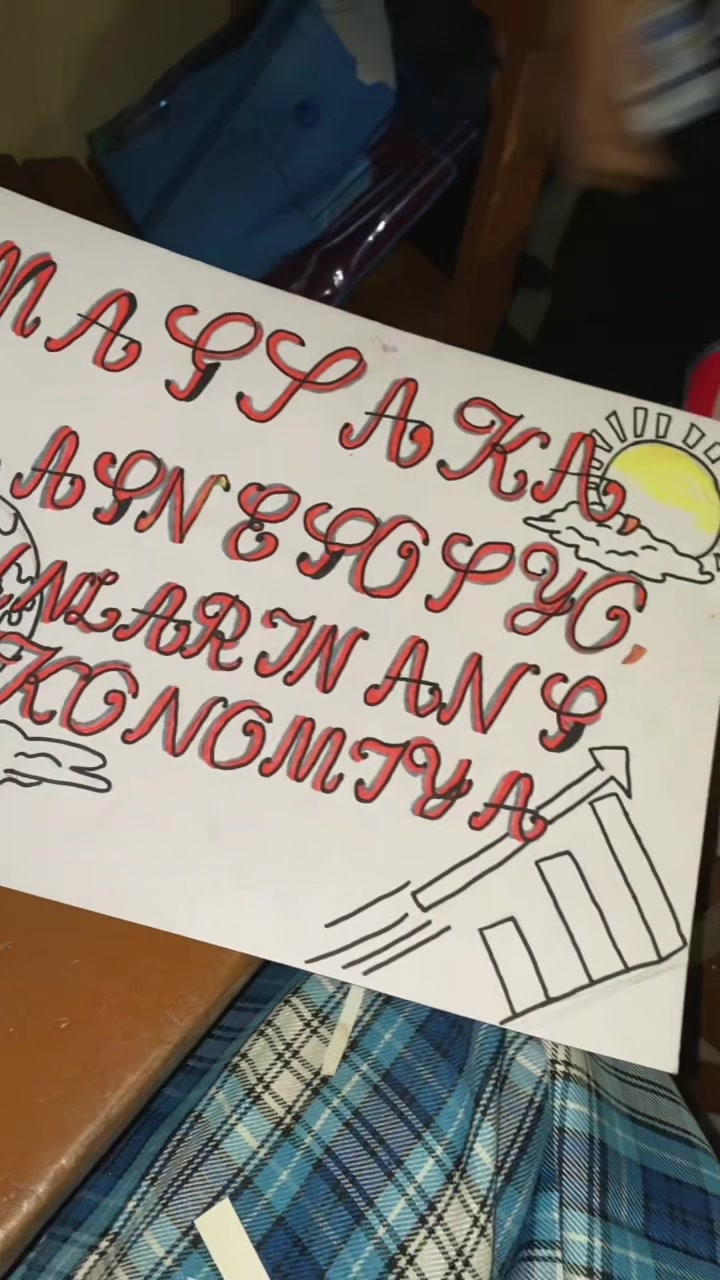 MAGSAKA,
AGNEGOSYO,
NLARIN ANG
KONOMIYA